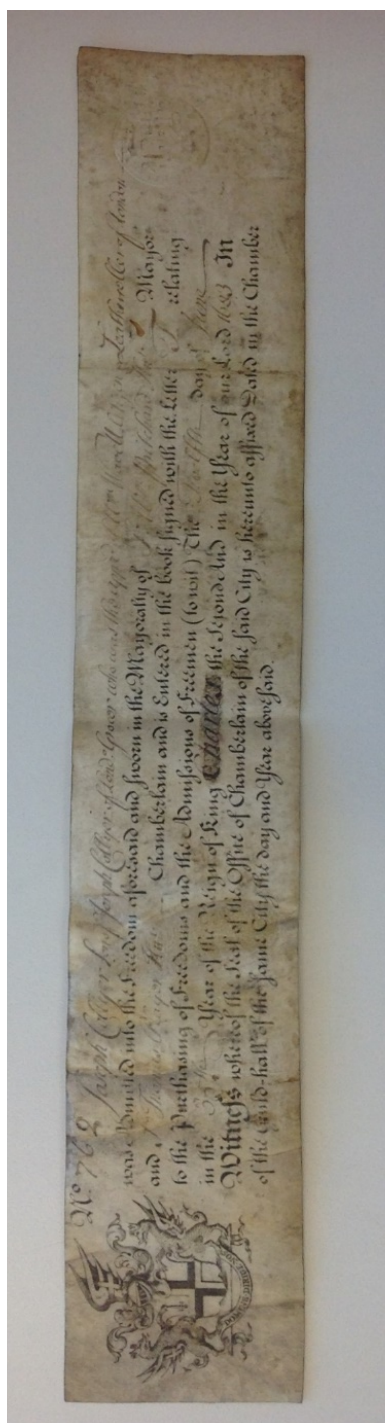 No 762 Joseph Collyer son of Joseph Collyer of London Grocer who was Leatherseller of London
was Admitted into the Freedom aforesaid and Sworn in the Mayoralty of Sr Wm Pritchard Kt Mayor
and Sr Thomas Player Kt Chamberlain and is Entered in the book signed with the Letter relating
to the Purchasing of Freedoms and the Admissions of Freemen (towit) The Twelfth day of June
in the 35th Year of the Reign of King Charles the Second And in the Year of our Lord 1683 In
Witness whereof the Seal of the Office of Chamberlain of the said City is hereunto affixed Dated in the Chamber
of the Guild-hall of the same City the day and Year abovesaid
DOMINE DIRIGE NOS